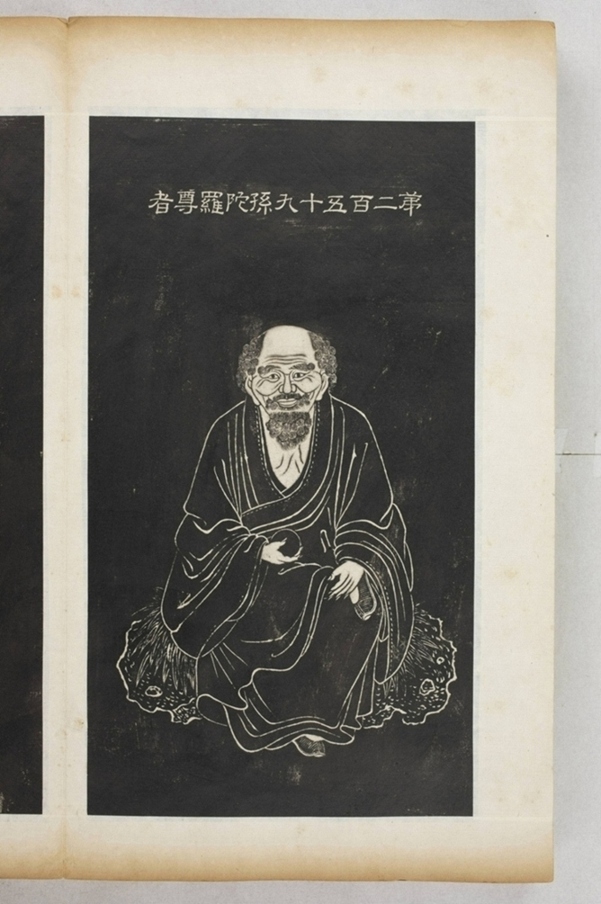 弟二百五十九孫陀羅尊者